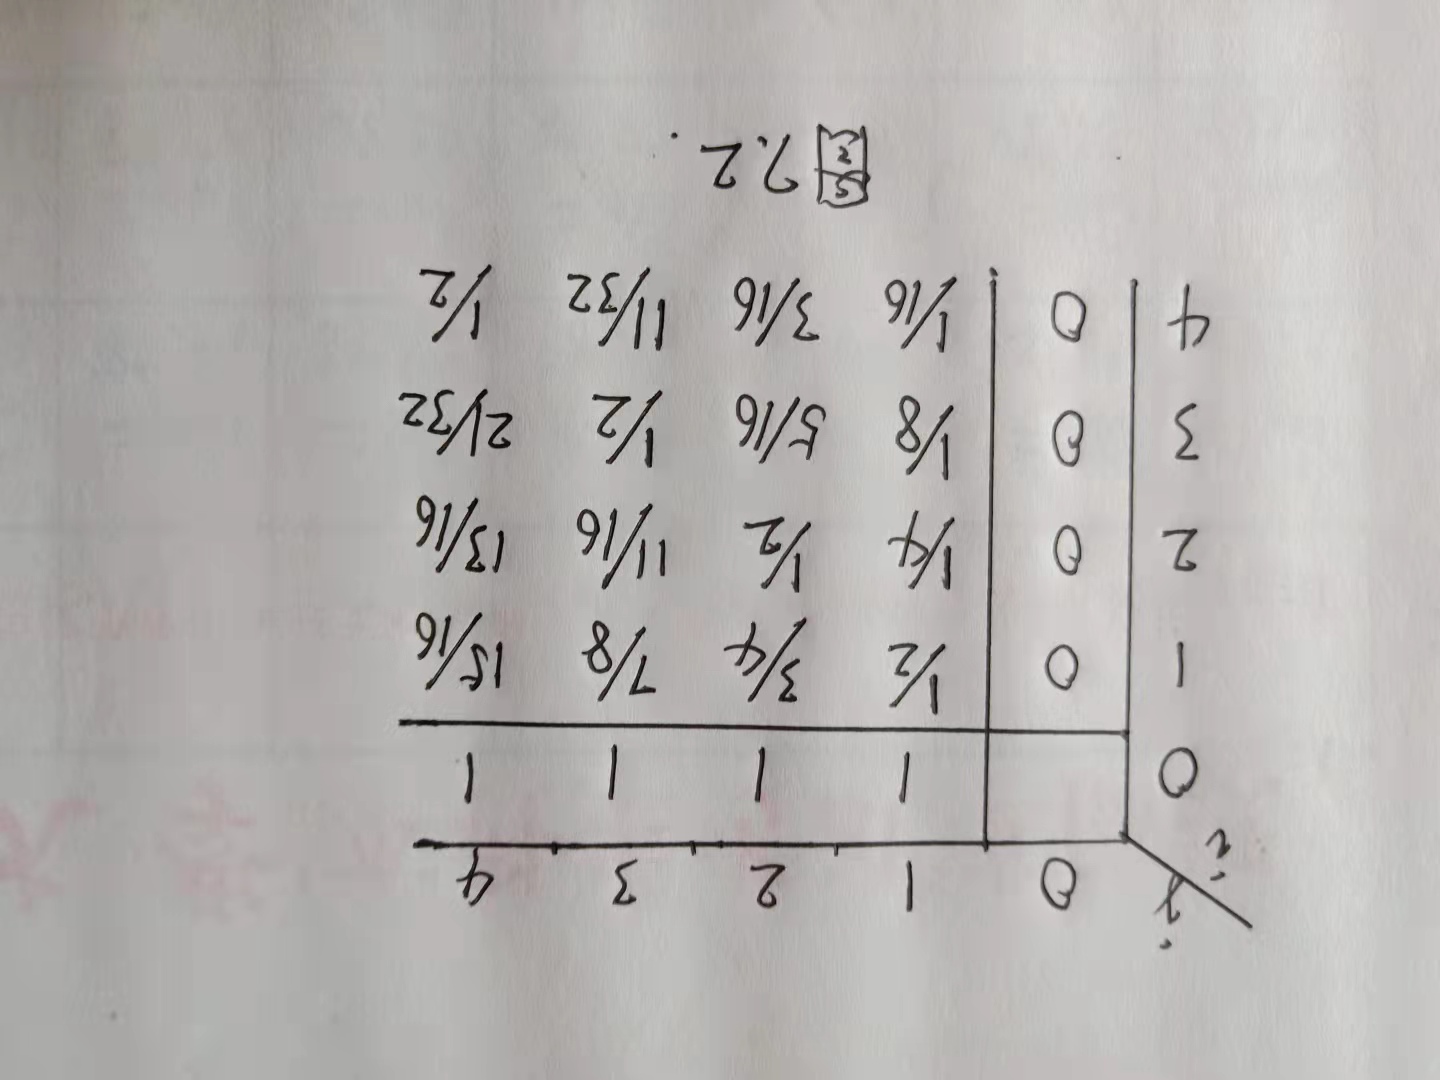 j 0 1 2 3 4
i
0 1 1 1 1
1 0 1/2 3/4 7/8 15/16
2 0 1/4 1/2 11/16 13/16
3 0 1/8 5/16 1/2 21/32
4 0 1/16 3/16 11/32 1/2
图7.2.